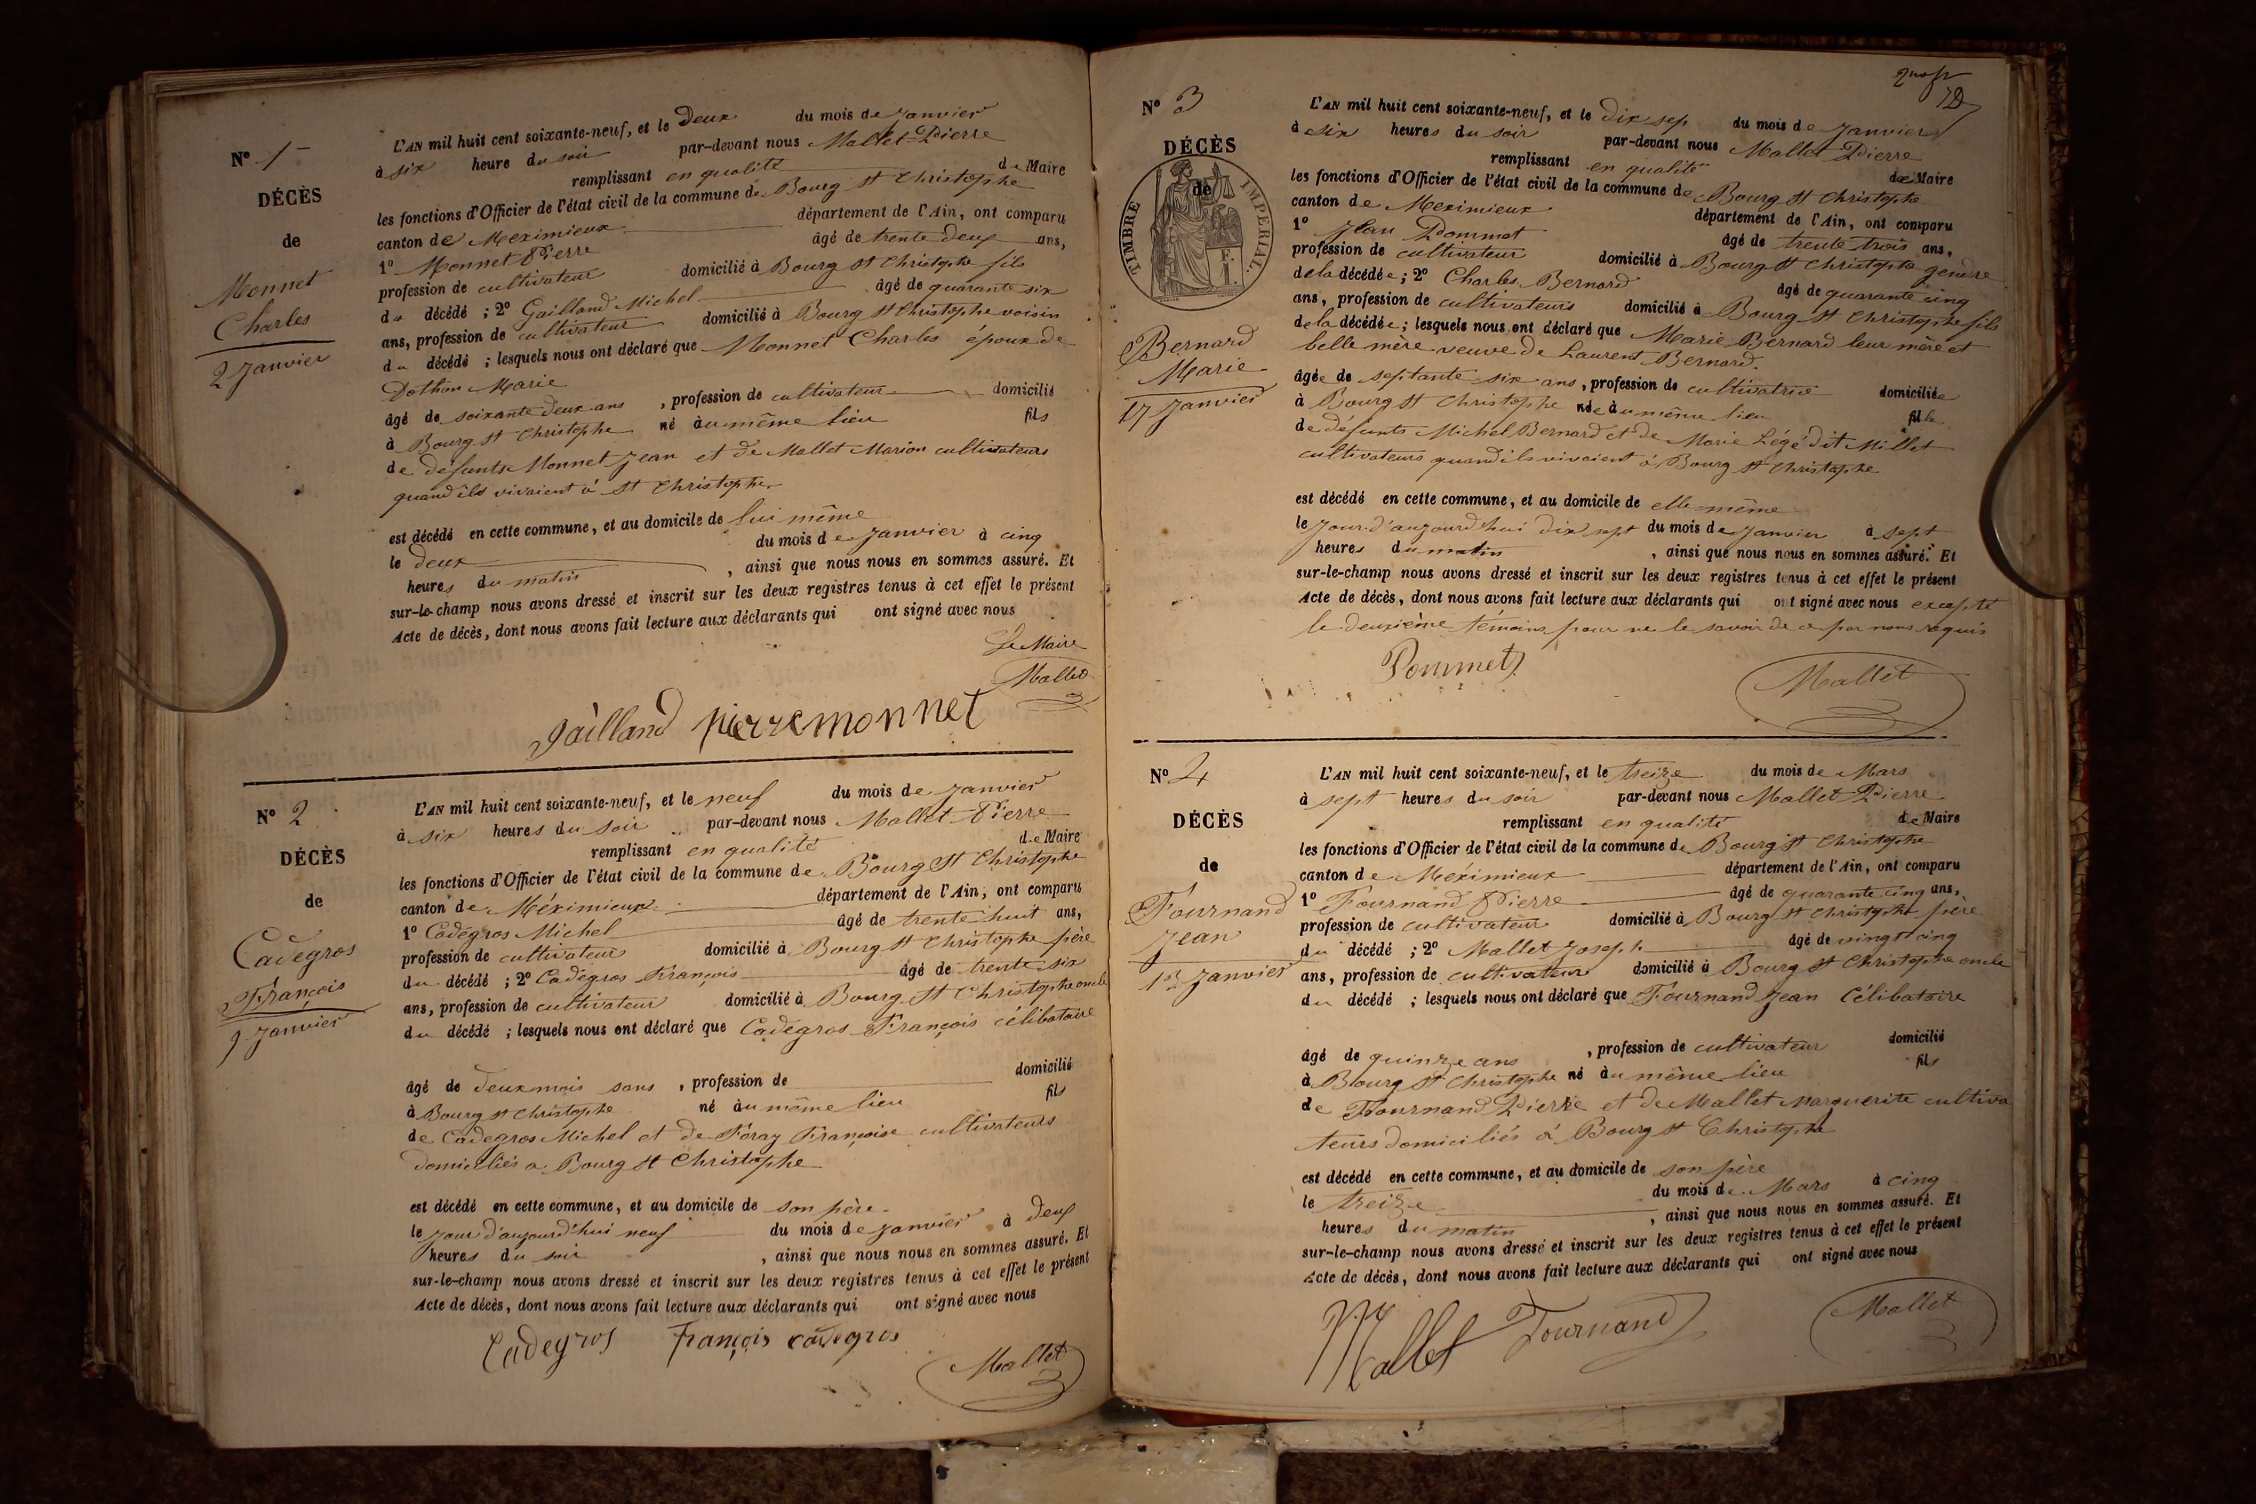 N° 1
DÉCÈS
de
Monnet
Charles
2 Janvier
L'AN mil huit cent soixante-neuf, et le Deux du mois de Janvier
à six heure du soir par-devant nous Mallet Pierre
remplissant en qualité de Maire
les fonctions d'Officier de l'état civil de la commune de Bourg St Christophe
canton de Meximieux département de l'Ain, ont comparu
1° Monnet Pierre âgé de trente deux ans,
profession de cultivateur domicilié à Bourg St Christophe fils
du décédé ; 2° Gailland Michel âgé de quarante six
ans, profession de cultivateur domicilié à Bourg St Christophe voisin
du décédé ; lesquels nous ont déclaré que Monnet Charles époux de
Dothon Marie
âgé de soixante deux ans , profession de cultivateur domicilié
à Bourg St Christophe né au même lieu fils
de défunts Monnet Jean et de Mallet Marion cultivateurs
quand ils vivaient à St Christophe
est décédé en cette commune, et au domicile de lui même
le deux du mois de Janvier à cinq
heures du matin , ainsi que nous nous en sommes assuré. Et
sur-le-champ nous avons dressé et inscrit sur les deux registres tenus à cet effet le présent
Acte de décès, dont nous avons fait lecture aux déclarants qui ont signé avec nous
Le Maire
Mallet
Gailland pierre monnet
N° 2
DÉCÈS
de
Cadegros
François
9 Janvier
L'AN mil huit cent soixante-neuf, et le neuf du mois de Janvier
à six heures du soir par-devant nous Mallet Pierre
remplissant en qualité de Maire
les fonctions d'Officier de l'état civil de la commune de Bourg St Christophe
canton de Méximieux département de l'Ain, ont comparu
1° Cadegros Michel âgé de trente huit ans,
profession de cultivateur domicilié à Bourg St Christophe père
du décédé ; 2° Cadegros François âgé de trente six
ans, profession de cultivateur domicilié à Bourg St Christophe oncle
du décédé ; lesquels nous ont déclaré que Cadegros François célibataire
âgé de deux mois sans , profession de domicilié
à Bourg St Christophe né au même lieu fils
de Cadegros Michel et de Féray Françoise cultivateurs
domiciliés a Bourg St Christophe
est décédé en cette commune, et au domicile de son père
le jour d'aujourd'hui neuf du mois de Janvier à deux
heures du soir , ainsi que nous nous en sommes assuré. Et
sur-le-champ nous avons dressé et inscrit sur les deux registres tenus à cet effet le présent
Acte de décès, dont nous avons fait lecture aux déclarants qui ont signé avec nous
Cadegros François cadegros
Mallet
N° 3
DÉCÈS
de
TIMBRE IMPERIAL
Bernard
Marie
17 Janvier
L'AN mil huit cent soixante-neuf, et le dix sep du mois de Janvier
à six heures du soir par-devant nous Mallet Pierre
remplissant en qualité de Maire
les fonctions d'Officier de l'état civil de la commune de Bourg St Christophe
canton de Meximieux département de l'Ain, ont comparu
1° Jean Pommet âgé de trente trois ans,
profession de cultivateur domicilié à Bourg St Christophe gendre
de la décédée ; 2° Charles Bernard âgé de quarante cinq
ans, profession de cultivateurs domicilié à Bourg St Christophe fils
de la décédée ; lesquels nous ont déclaré que Marie Bernard leur mère et
belle mère veuve de Laurent Bernard.
âgée de septante six ans , profession de cultivatrice domiciliée
à Bourg St Christophe née au même lieu fille
de défunts Michel Bernard et de Marie Légé dit Millet
cultivateurs quand ils vivaient à Bourg St Christophe
est décédé en cette commune, et au domicile de elle même
le jour d'aujourd'hui dix sept du mois de Janvier à sept
heures du matin , ainsi que nous nous en sommes assuré. Et
sur-le-champ nous avons dressé et inscrit sur les deux registres tenus à cet effet le présent
Acte de décès, dont nous avons fait lecture aux déclarants qui ont signé avec nous excepté
le deuxième témoins pour ne le savoir de ce par nous requis
Pommet
Mallet
N° 4
DÉCÈS
de
Fournand
Jean
13 Janvier
L'AN mil huit cent soixante-neuf, et le treize du mois de Mars
à sept heures du soir par-devant nous Mallet Pierre
remplissant en qualité de Maire
les fonctions d'Officier de l'état civil de la commune de Bourg St Christophe
canton de Méximieux département de l'Ain, ont comparu
1° Fournand Pierre âgé de quarante cinq ans,
profession de cultivateur domicilié à Bourg St Christophe père
du décédé ; 2° Mallet Joseph âgé de vingt cinq
ans, profession de cultivateur domicilié à Bourg St Christophe oncle
du décédé ; lesquels nous ont déclaré que Fournand Jean Célibataire
âgé de quinze ans , profession de cultivateur domicilié
à Bourg St Christophe né au même lieu fils
de Fournand Pierre et de Mallet Marguerite cultiva
teurs domiciliés à Bourg St Christophe
est décédé en cette commune, et au domicile de son père
le treize du mois de Mars à cinq
heures du matin , ainsi que nous nous en sommes assuré. Et
sur-le-champ nous avons dressé et inscrit sur les deux registres tenus à cet effet le présent
Acte de décès, dont nous avons fait lecture aux déclarants qui ont signé avec nous
Mallet Fournand
Mallet